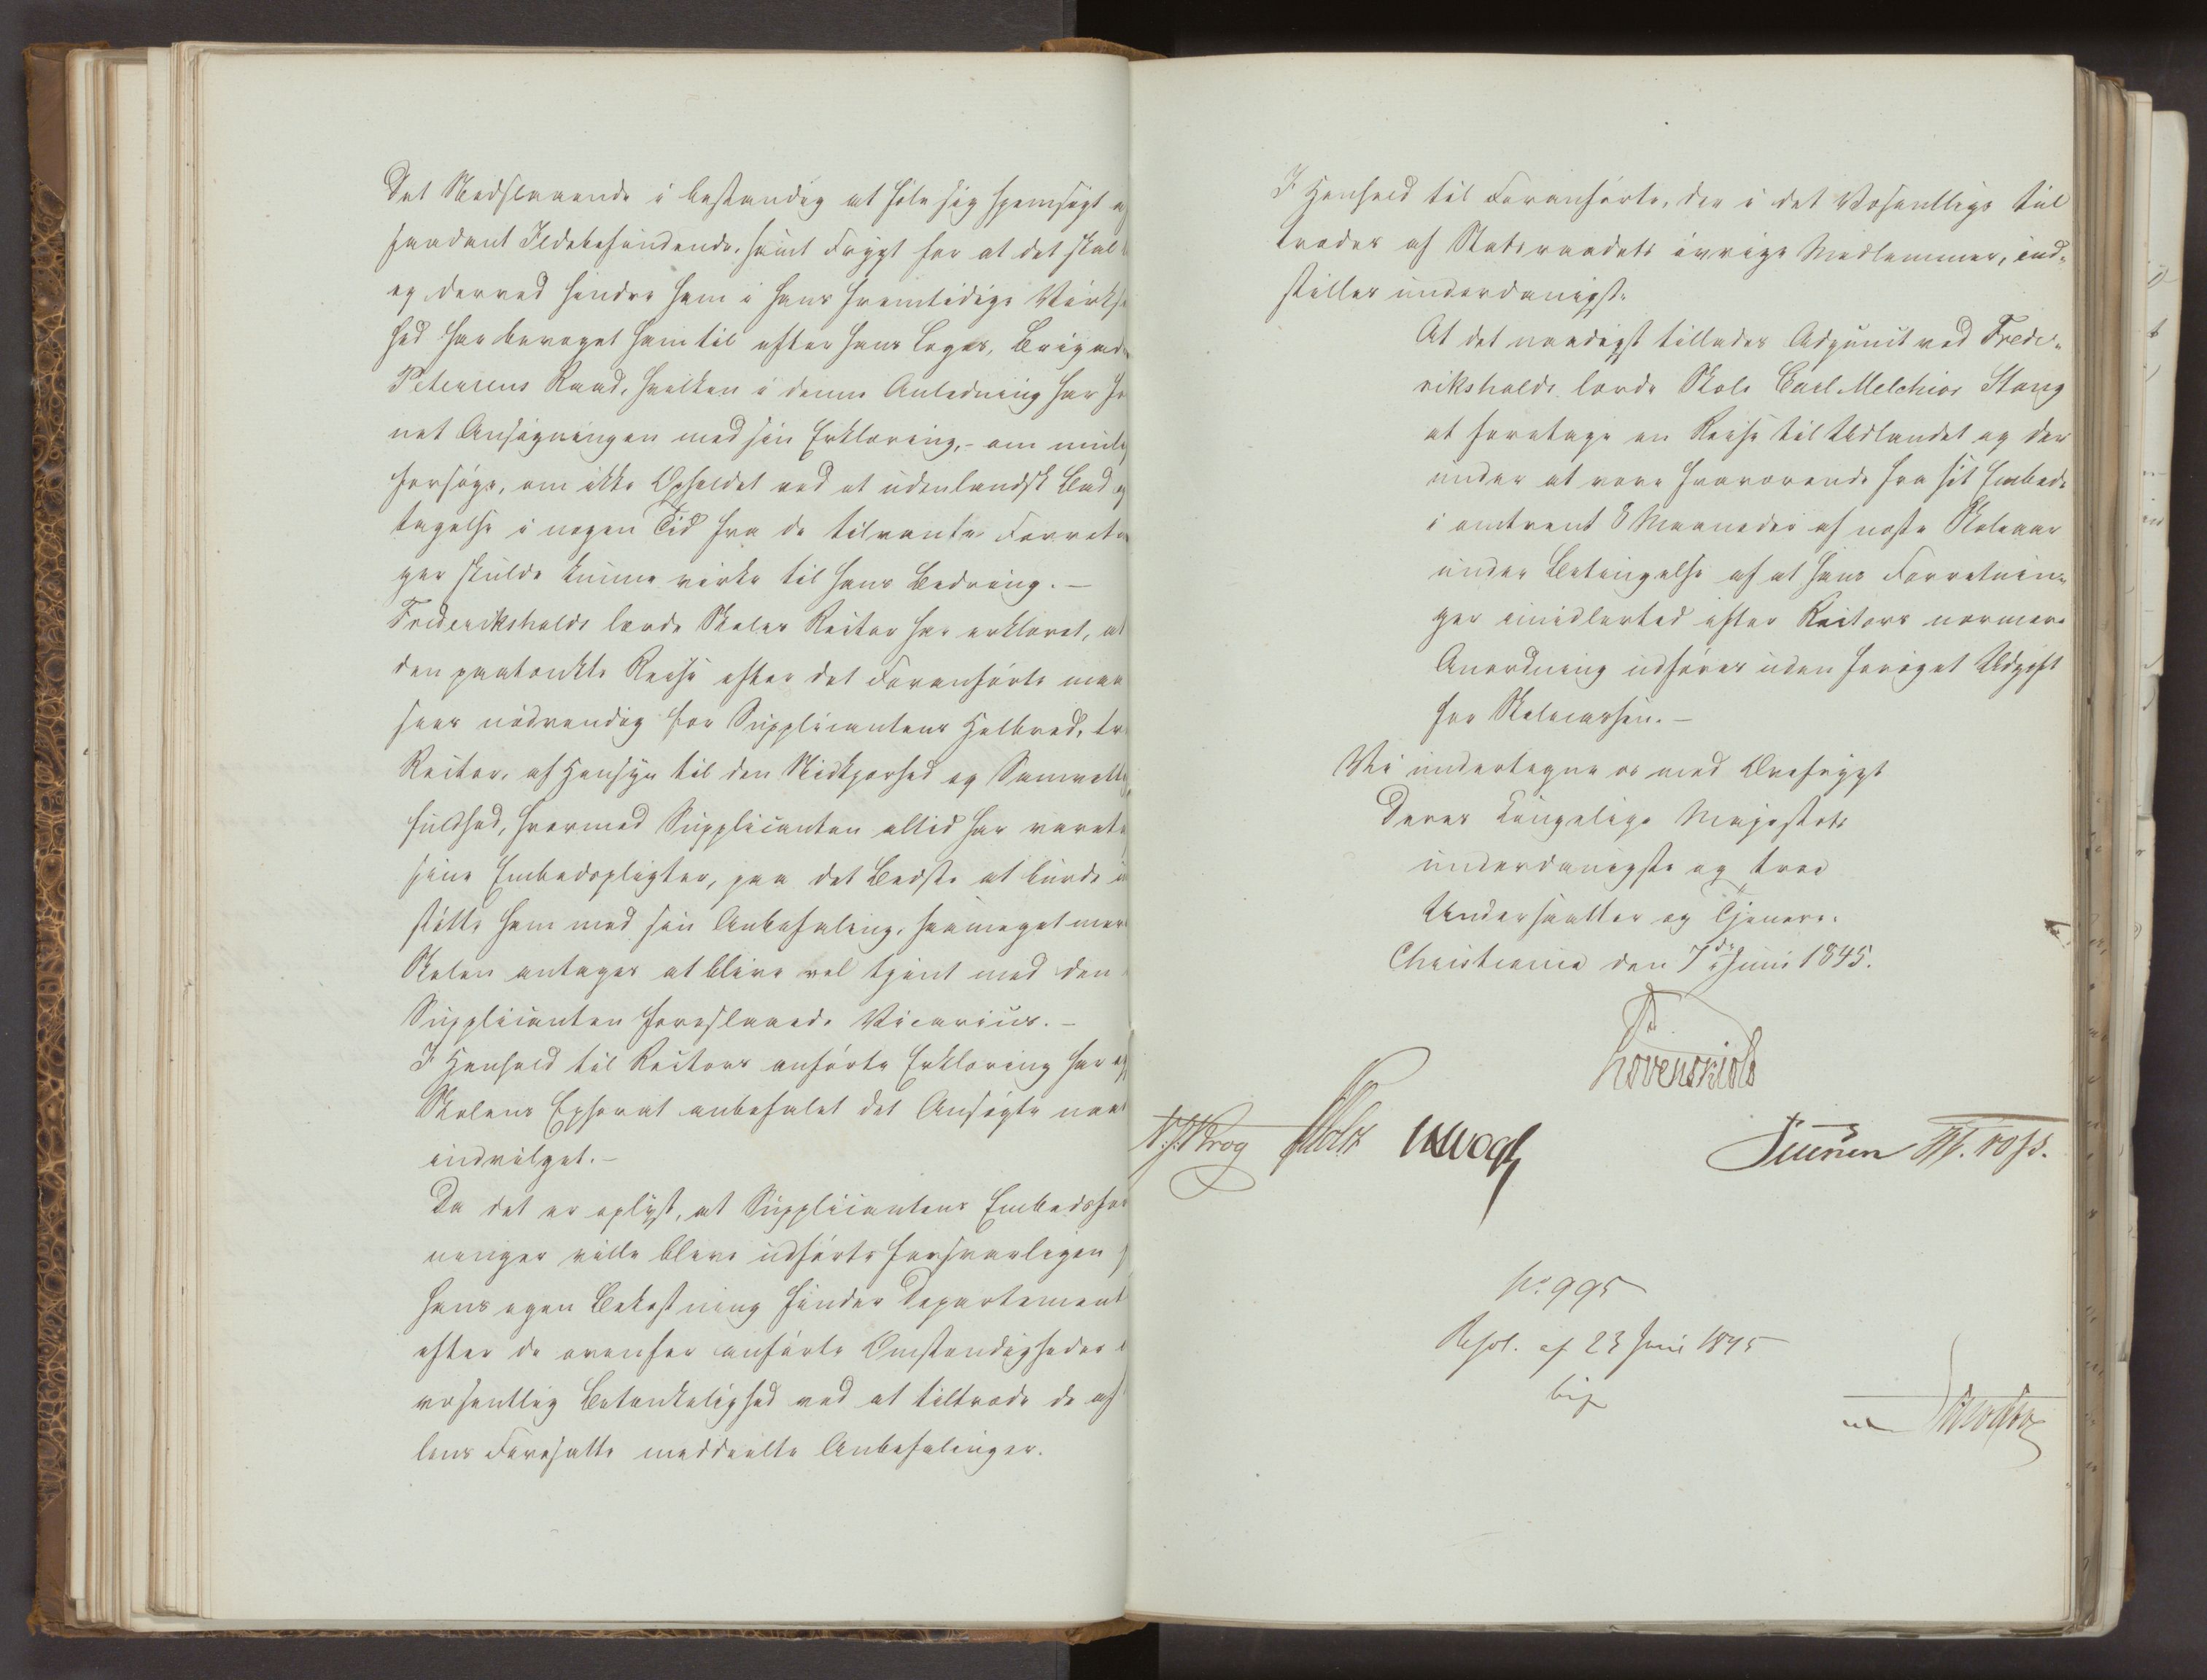 Det Nedslaaende i bestandig at føle sig hjemsøgt a
saadant Ildebefindende, samt Frygt for at det skal
og derved hindre ham i hans fremtidige Virks
hed har bevæget ham til efter hans Læges, Brigade
Petersens Raad, hvilken i denne Anledning har
net Ansøgningen med sin Erklæring, - om mulig
forsøge, om ikke Opholdet ved et udenlandsk Bad og
tagelse i nogen Tid fra de tilvante Forretn
ger skulde kunne virke til hans Bedring. -
Frederikshalds lærde Skoles Rector har erklæret, at
den paatænkte Reise efter det Foranførte maa
sees nødvendig for Supplicantens Helbred, tr
Rector, af Hensyn til den Nidkjærhed og Samvitti
fuldhed, hvormed Supplicanten altid har vareta
sine Embedspligter, paa det Bedste at burde u
støtte ham med sin Anbefaling, saameget mere
Skolen antages at blive vel tjent med den
Supplicanten foreslaaede Vicarius. -
I Henhold til Rectors anførte Erklæring har og
Skolens Ephorat anbefalet det Ansøgte naa
indvilget. -
Da det er oplyst, at Supplicantens Embedsfor
ninger ville blive udførte forsvarligen
hans egen Bekostning finder Departement
efter de ovenfor anførte Omstændigheder
væsentlig Betænkelighed ved at tiltræde de af
lens Foresatte meddeelte Anbefalinger.
I Henhold til Foranførte, der i det Væsentlige til
trædes af Statsraadets øvrige Medlemmer, ind-
stilles underdanigst:
At det naadigst tillades Adjunct ved Frede-
rikshalds lærde Skole Carl Melchior Stang
at foretage en Reise til Udlandet og der
under at være fraværende fra sit Embede
i omtrent 8 Maaneder af næste Skoleaar
under Betingelse af at hans Forretnin-
ger imidlertid efter Rectors nærmere
Anordning udføres uden forøget Udgift
for Skolecassen. -
Vi undertegne os med Ærefrygt
Deres Kongelige Majestæts
underdanigste og troe
Undersaatter og Tjenere.
Christiania den 7de Juni 1845.
Løvenskiold
N. J. Krog Holst JHVogt
No. 995
Resol. af 23 Juni 1845